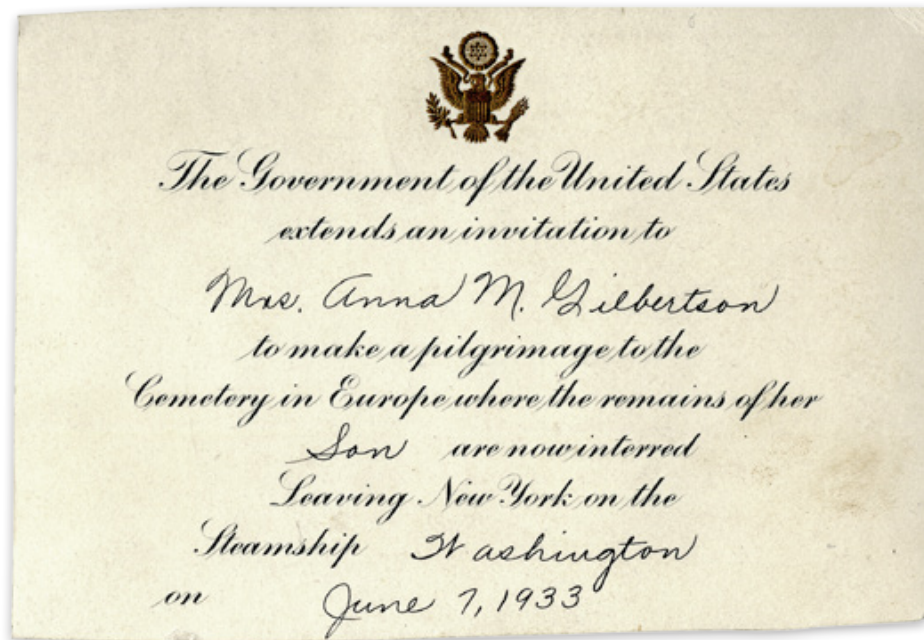 The Government of the United States
extends an invitation to
Mrs. Anna M. Gilbertson
to make a pilgrimage to the
Cemetery in Europe where the remains of her
Son are now interred
Leaving New York on the
Steamship Washington
on June 7, 1933